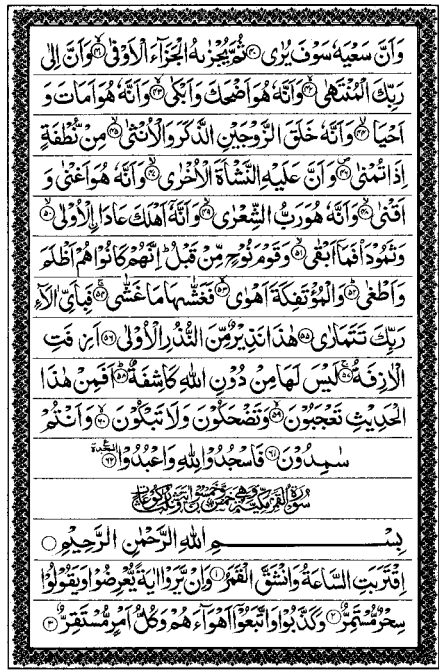 وَاَنَّ سَعْيَهٗ سَوْفَ يُرٰى ۝۴۰ ثُمَّ يُجْزٰىهُ الْجَزَآءَ الْاَوْفٰى ۝۴۱ وَاَنَّ اِلٰى
رَبِّكَ الْمُنْتَهٰى ۝۴۲ وَاَنَّهٗ هُوَ اَضْحَكَ وَاَبْكٰى ۝۴۳ وَاَنَّهٗ هُوَ اَمَاتَ وَ
اَحْيَا ۝۴۴ وَاَنَّهٗ خَلَقَ الزَّوْجَيْنِ الذَّكَرَ وَالْاُنْثٰى ۝۴۵ مِنْ نُّطْفَةٍ
اِذَا تُمْنٰى ۝۴۶ وَاَنَّ عَلَيْهِ النَّشْاَةَ الْاُخْرٰى ۝۴۷ وَاَنَّهٗ هُوَ اَغْنٰى وَ
اَقْنٰى ۝۴۸ وَاَنَّهٗ هُوَ رَبُّ الشِّعْرٰى ۝۴۹ وَاَنَّهٗٓ اَهْلَكَ عَادَا ۨالْاُوْلٰى ۝۵۰
وَثَمُوْدَا۟ فَمَآ اَبْقٰى ۝۵۱ وَقَوْمَ نُوْحٍ مِّنْ قَبْلُ ؕ اِنَّهُمْ كَانُوْا هُمْ اَظْلَمَ
وَاَطْغٰى ۝۵۲ وَالْمُؤْتَفِكَةَ اَهْوٰى ۝۵۳ فَغَشّٰىهَا مَا غَشّٰى ۝۵۴ فَبِاَىِّ اٰلَآءِ
رَبِّكَ تَتَمَارٰى ۝۵۵ هٰذَا نَذِيْرٌ مِّنَ النُّذُرِ الْاُوْلٰى ۝۵۶ اَزِفَتِ
الْاٰزِفَةُ ۝۵۷ لَيْسَ لَهَا مِنْ دُوْنِ اللّٰهِ كَاشِفَةٌ ۝۵۸ اَفَمِنْ هٰذَا
الْحَدِيْثِ تَعْجَبُوْنَ ۝۵۹ وَتَضْحَكُوْنَ وَلَا تَبْكُوْنَ ۝۶۰ وَاَنْتُمْ
سٰمِدُوْنَ ۝۶۱ فَاسْجُدُوْا لِلّٰهِ وَاعْبُدُوْا ۝۶۲ السجدة
سُوْرَةُ الْقَمَرِ مَكِّيَّةٌ وَّهِىَ خَمْسٌ وَّخَمْسُوْنَ اٰيَةً وَّثَلٰثُ رُكُوْعَاتٍ
بِسْمِ اللّٰهِ الرَّحْمٰنِ الرَّحِيْمِ
اِقْتَرَبَتِ السَّاعَةُ وَانْشَقَّ الْقَمَرُ ۝۱ وَاِنْ يَّرَوْا اٰيَةً يُّعْرِضُوْا وَيَقُوْلُوْا
سِحْرٌ مُّسْتَمِرٌّ ۝۲ وَكَذَّبُوْا وَاتَّبَعُوْٓا اَهْوَآءَهُمْ وَكُلُّ اَمْرٍ مُّسْتَقِرٌّ ۝۳